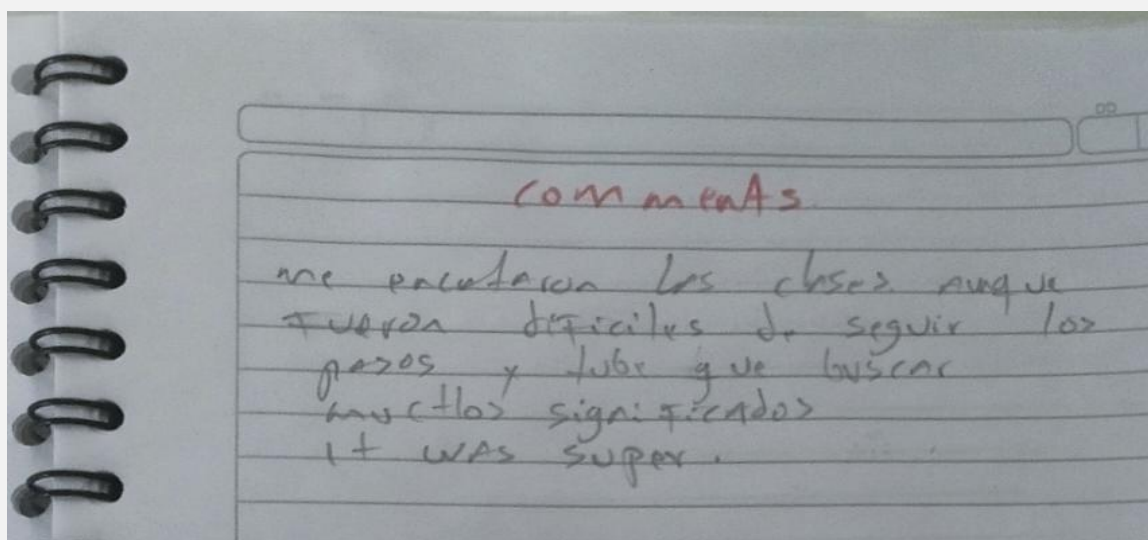 comments
me encataron las clases aunque
fueron dificiles de seguir los
pasos y tube que buscar
muchos significados
it was super.